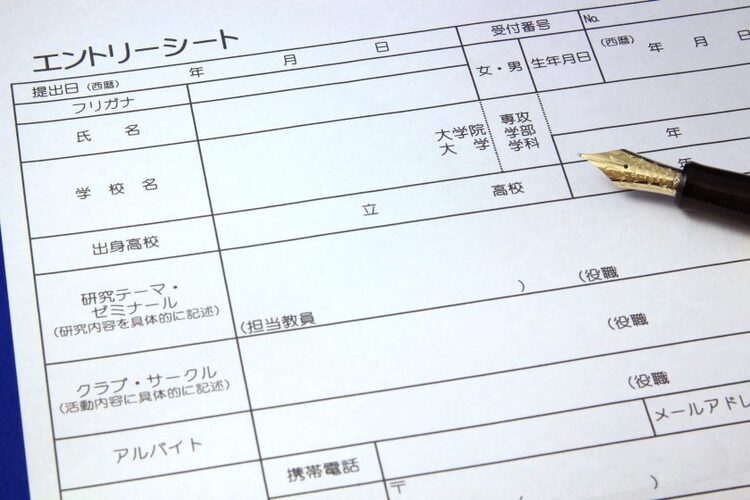 エントリーシート
受付番号 No.
提出日(西暦) 年 月 日 女・男 生年月日 (西暦) 年 月 日
フリガナ
氏 名
学 校 名 大学院 専攻
大 学 学部
学科
年
年
出身高校 立 高校
研究テーマ・
ゼミナール
(研究内容を具体的に記述)
(担当教員 ) (役職
クラブ・サークル
(活動内容に具体的に記述)
(役職
(役職
アルバイト
携帯電話 メールアドレ
〒 )